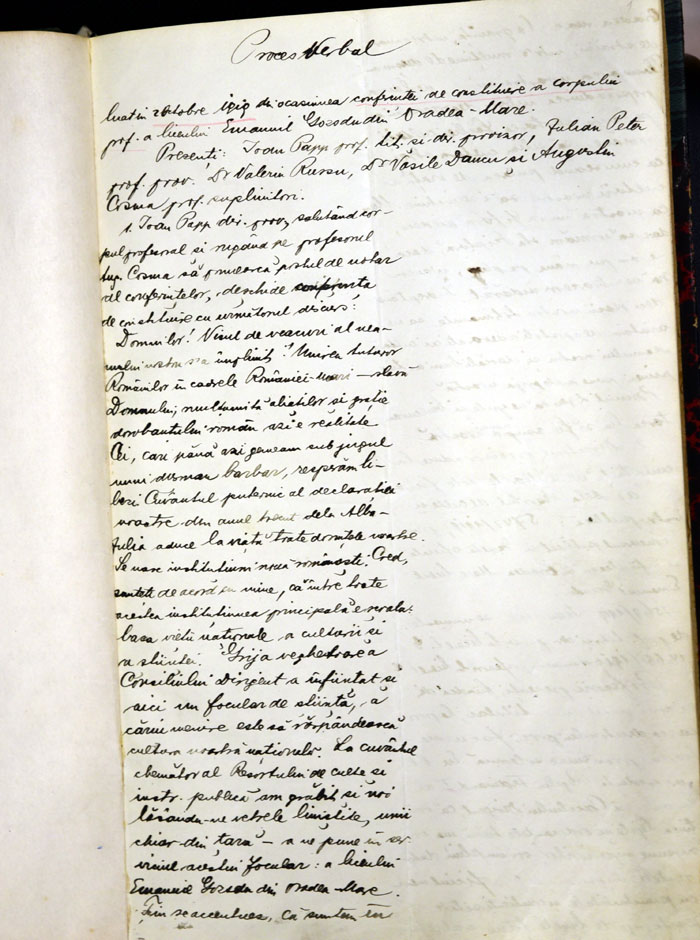 Proces Verbal
luat in octobre 1919 din ocasiunea confrintei de constituire a corpului
prof. a liceului Emanuil Gozsdu din Oradea-Mare.
Presenți: Ioan Papp prof. tit. și dir. provizor, Iulian Peter
prof. prov. Dr Valeriu Russu, Dr Vasile Dancu și Augustin
Cosma prof. suplinitori.
1. Ioan Papp dir. prov, salutând cor-
pul profesoral si rugând pe profesorul
sup. Cosma să primească postul de notar
al conferintelor, deschide confrinta
de constituire cu urmitorul discurs:
Domnilor! Visul de veacuri al nea-
mului nostru s'a înplinit! Unirea tuturor
Românilor în cadrele României-mari – slavă
Domnului, multumită aliatilor si gratie
dorobantului român azi e realitate.
Cei, cari până azi gemeam sub jugul
unui dusman barbar, respirăm li-
beri Cuvântul puternic al declaratiei
noastre din anul trecut dela Alba-
Iulia aduce la viată toate dorintele noastre.
Se nasc institutiuni nouă românesti. Cred,
sunteti de acord cu mine, că între toate
acestea institutiunea principală e scoala:
basa vietii nationale a culturii si
a stiintei. Grija veghetoare a
Consiliului Dirigent a infiintat si
aici un focular de stiintă, a
cărui menire este să răspândească
cultura noastră natională. La cuvântul
chemător al Resortului de culte si
instr. publică am grăbit si noi
lăsându-ne vetrele linistite, unii
chiar din tară – a ne pune în ser-
viciul acestui focular: a liceului
Emanuil Gozsdu din Oradea-Mare.
Țin se accentuez, că suntem în